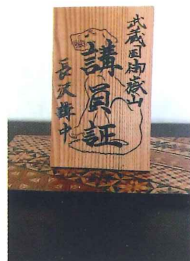 武蔵国御嶽山
講員証
長沢講中